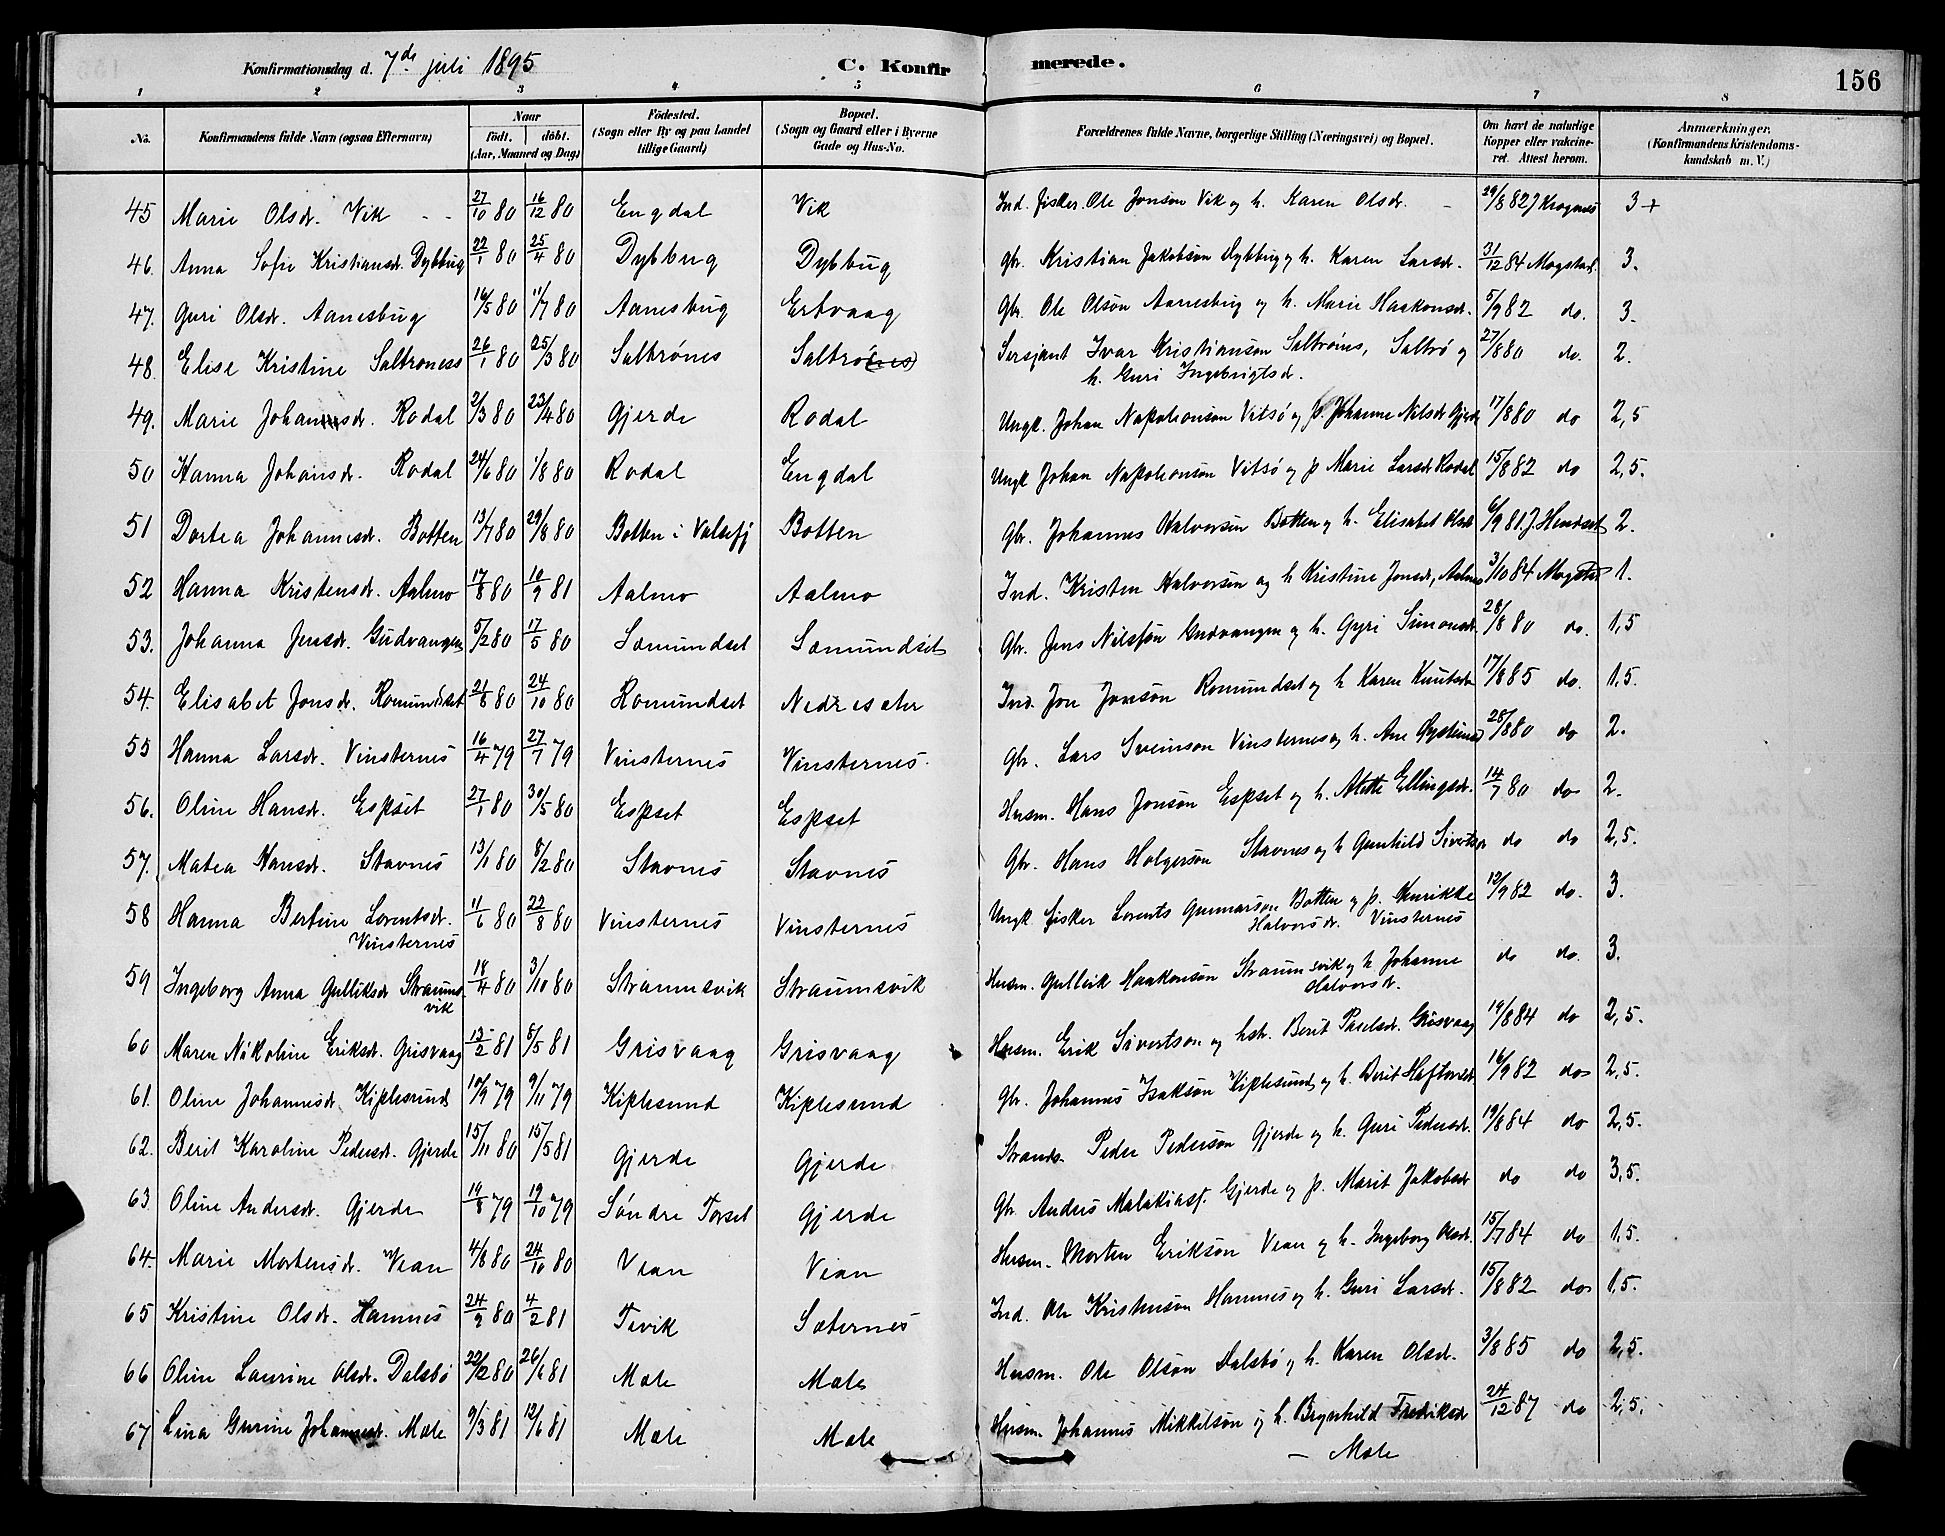 Konfirmationsdag d. 7de juli 1895 C. Konfirmerede. 156
1 2 3 4 5 6 7 8
No. Konfirmandens fulde Navn (ogsaa Efternavn) Naar født, døbt. (Aar, Maaned og Dag) Fødested. (Sogn eller By og paa Landet tillige Gaard) Bopæl. (Sogn og Gaard eller i Byerne Gade og Hus-No. Forældrenes fulde Navne, borgerlige Stilling (Næringsvei) og Bopæl. Om havt de naturlige Kopper eller vakcineret. Attest herom. Anmærkninger. (Konfirmandens Kristendomskundskab m. V.)
45 Marie Olsdr. Vik 27/10 80 16/12 80 Engdal Vik Ind. Fisker. Ole Jonson Vik og h. Karen Olsdr. 29/8 82 J Krognes 3+
46. Anna Sofie Kristiansdr. Dybbug 22/1 80 25/4 80 Dybbug Dybbug Gbr. Kristian Jakobson Dybbug og h. Karen Larsdr. 31/12 84 Mogstad. 3.
47. Guri Olsdr. Aanesbug 16/5 80 11/7 80 Aanesbug Ertvaag Gbr. Ole Olsøn Aanesbug og h. Marie Haakonsdr. 5/9 82 do. 3.
48. Elise Kristine Saltrøness 26/1 80 25/3 80 Saltrønes Saltrø(nes) Sersjant Ivar Kristianson Saltrønes, Saltrø og h. Guri Ingebrigtsdr. 27/8 80 do. 2.
49. Marie Johansdr. Rodal 2/3 80 23/4 80 Gjerde Rodal Ungk. Johan Napoleonson Vitsø og p. Johanne Nilsdr Gjerde 17/8 80 do 2,5
50 Hanna Johansdr. Rodal 24/6 80 1/8 80 Rodal Engdal Ungk Johan Napoleonson Vitsø og p Marie Larsdr Rodal 15/8 82 do 2,5.
51 Dortea Johannesdr. Botten 13/7 80 29/8 80 Botten i Valsøfj Botten Gbr. Johannes Halvorsen Botten og h. Elisabet Olsdr 6/9 81. J. Hendset 2.
52 Hanna Kristensdr. Aalmo 17/8 80 10/9 81 Aalmo Aalmo Ind. Kristen Halvorsen og h Kristine Jonsdr, Aalmo 3/10 84 Mogstad 1.
53. Johanna Jensdr. Gudvangen 5/2 80 17/5 80 Sæmundset Sæmundset Gbr. Jens Nilssøn Gudvangen og h. Gyri Simonsdr. 28/8 80 do. 1,5
54. Elisabet Jonsdr. Romundset 21/8 80 24/10 80 Romundset Nedresæter Ind. Jon Jonsøn Romundset og h Karen Knutsdr 17/8 85 do. 1,5.
55 Hanna Larsdr. Vinsternes 16/4 79 27/7 79 Vinsternes Vinsternes. Gbr. Lars Sveinson Vinsternes og h. Ane Øysteinsd 28/8 80 do 2.
56. Oline Hansdr. Espset 27/1 80 30/5 80 Espset Espset Husm. Hans Jonsøn Espset og h. Alette Ellingsdr. 14/7 80 do 2.
57. Matea Hansdr. Stavnes 13/1 80 8/2 80 Stavnes Stavnes Gbr. Hans Holgerson Stavnes og h Gunhild Sivertsdr do do 2,5.
58 Hanna Bertine Lorentsdr. Vinsternes 11/6 80 22/8 80 Vinsternes Vinsternes Ungk Fisker Lorents Gunnarson Botten og p. Henrikke Halvorsdr. Vinsternes 12/9 82 do. 3.
59 Ingeborg Anna Gulliksdr Straumsvik 18/4 80 3/10 80 Straumsvik Straumsvik Husm. Gullik Haakonsøn Straumsvik og h Johanne Halvorsdr. do do. 3.
60 Maren Nikoline Eriksdr. Grisvaag 13/2 81 8/5 81 Grisvaag Grisvaag Husm. Erik Sivertson og hstr. Berit Paulsdr. Grisvaag 19/8 84 do 2,5.
61. Oline Johannesdr. Kiplesund 10/9 79 9/11 79 Kiplesund Kiplesund Gbr. Johannes Isaksøn Kiplesund og h. Berit Haftorsdr 16/9 82 do 2,5.
62. Berit Karoline Pedersdr. Gjerde 15/11 80 15/5 81 Gjerde Gjerde Strands. Peder Pedersøn Gjerde og h. Guri Pedersdr. 19/8 84 do 2,5.
63. Oline Andersdr. Gjerde 14/8 79 19/10 79 Søndre Torset Gjerde Gbr Anders Malakiass. Gjerde og p. Marit Jakobsdr do do 3,5.
64. Marie Mortensdr. Vean 4/8 80 24/10 80 Vean Vean Husm. Morten Eriksøn Vean og h. Ingeborg Olsdr. 15/7 84 do 1,5.
65 Kristine Olsdr. Hamnes 24/9 80 4/2 81 Tevik Sæternes Ind. Ole Kristensøn Hamnes og h. Guri Larsdr. 15/8 82 do 1,5.
66 Oline Laurine Olsdr. Dalsbø 22/12 80 26/6 81 Mæle Mæle Husm. Ole Olsøn Dalsbø og h. Karen Olsdr. 3/8 85 do 2,5.
67 Lina Gurine Johannesdr. Mæle 9/3 81 12/6 81 Mæle Mæle Husm. Johannes Mikkelsøn og h. Brynhild Frediksdr — Mæle 24/12 87 do 2,5.